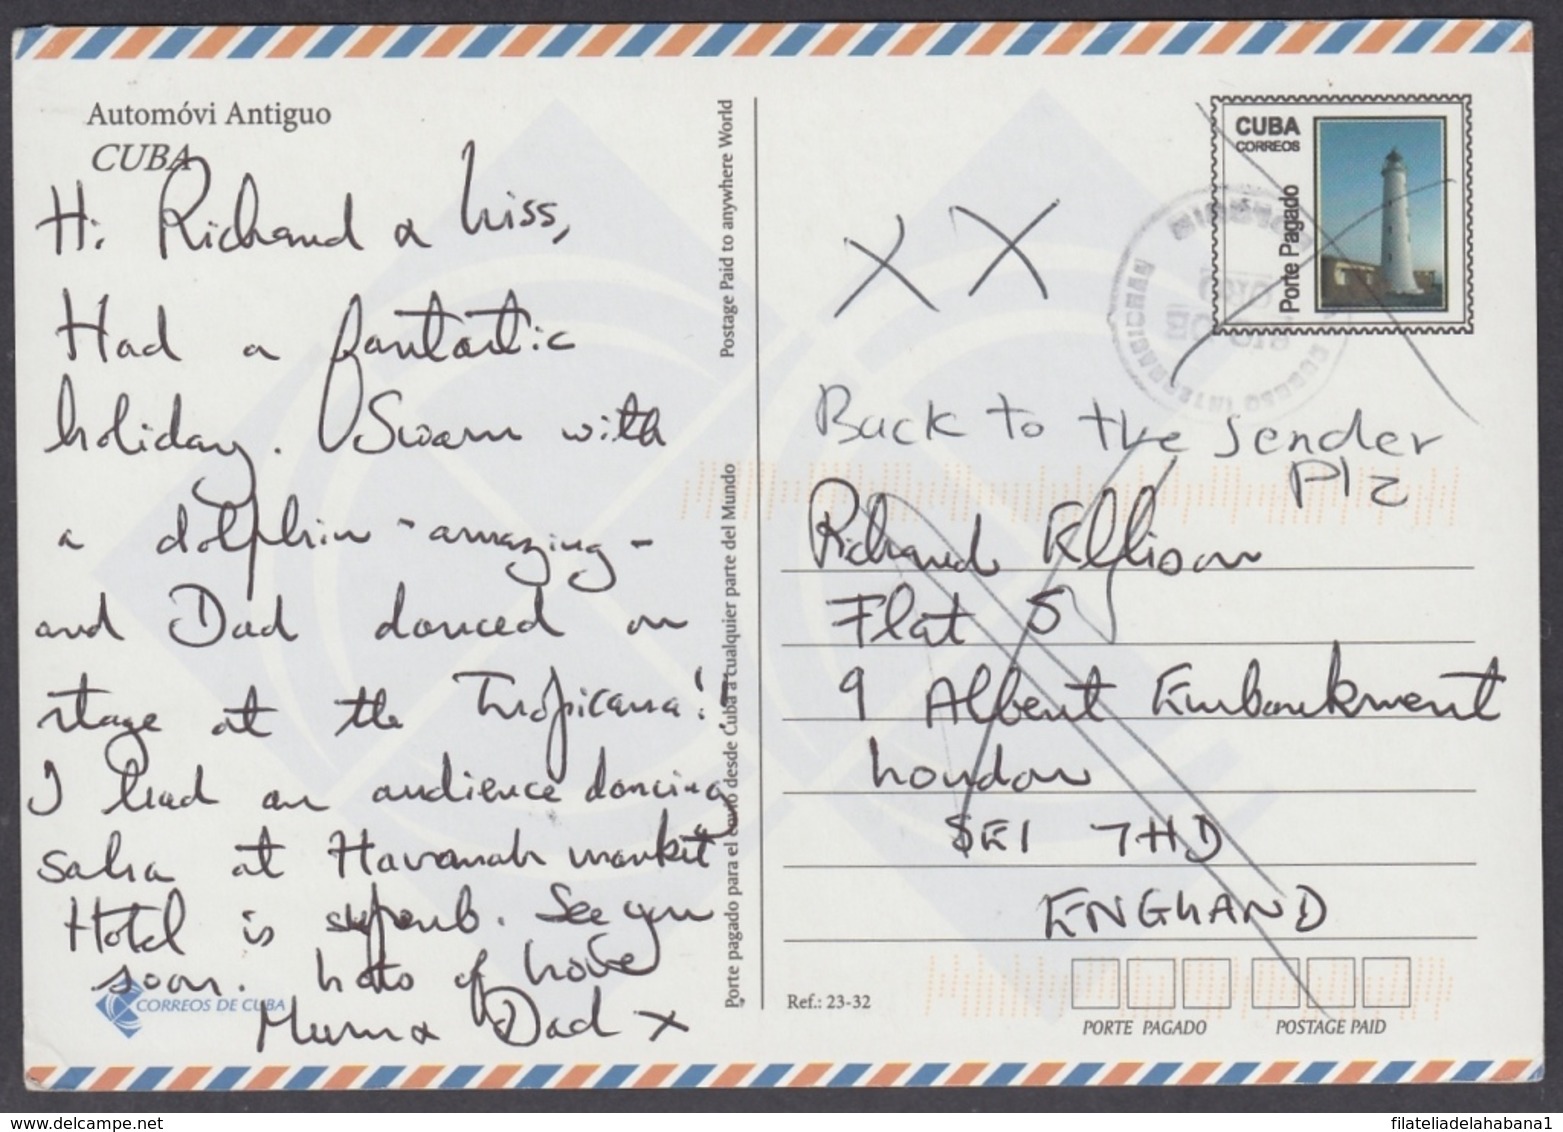 Automóvi Antiguo
CUBA
Hi Richard & Liss,
Had a fantastic
holiday. Swam with
a dolphin - amazing -
and Dad danced on
stage at the Tropicana!
I had an audience dancing
salsa at Havanah market
Hotel is superb. See you
soon. Lots of love
Mum & Dad x
CORREOS DE CUBA
Postage Paid to anywhere World
Porte pagado para el envío desde Cuba a cualquier parte del Mundo
CUBA
CORREOS
Porte Pagado
X X
Back to the sender
Plz
Richard Ellison
Flat 5
9 Albert Embankment
London
SE1 7HD
ENGLAND
Ref.: 23-32
PORTE PAGADO
POSTAGE PAID
filateliadelahabana1